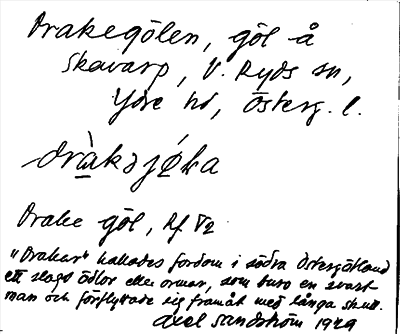 Drakegölen, göl å
Skavarp, V. Ryds sn,
Ydre hd, Österg. l.
dràkajǿka
Drake göl, Rf 1/2
"Drakar" kallades fordom i södra Östergötland
ett slags ödlor eller ormar, som buro en svart
man och förflyttade sig framåt med långa skutt.
Axel Sandström 1929